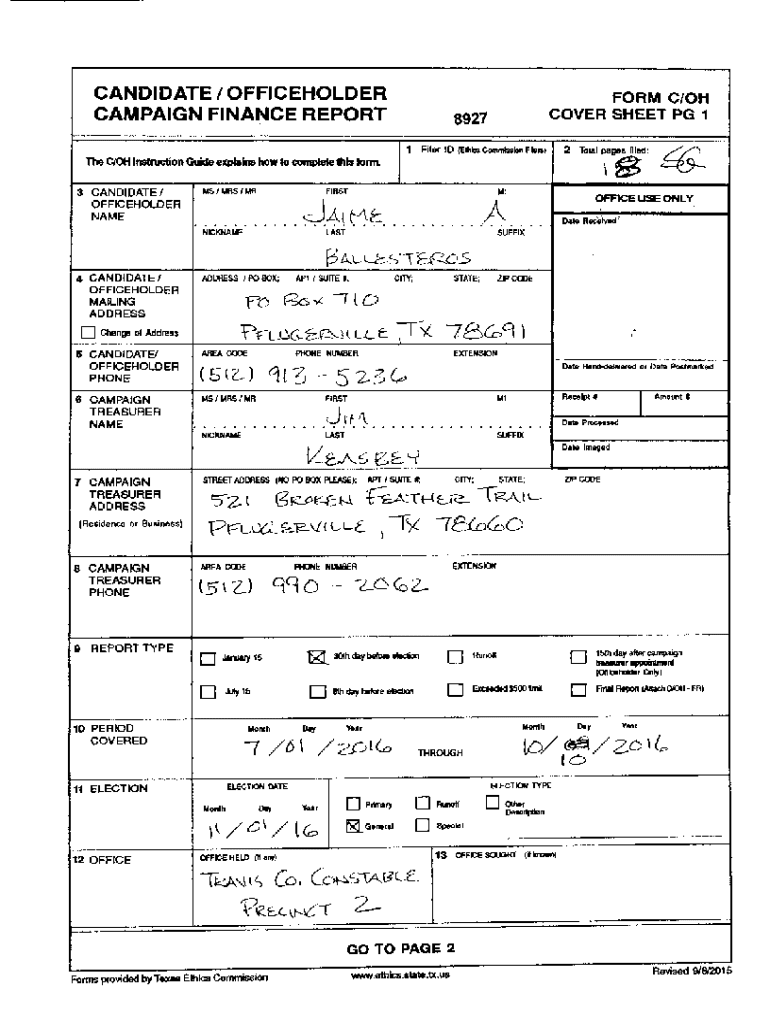 CANDIDATE / OFFICEHOLDER
CAMPAIGN FINANCE REPORT
8927
FORM C/OH
COVER SHEET PG 1
The C/OH Instruction Guide explains how to complete this form.
1 Filer ID (Ethics Commission Filers)
2 Total pages filed:
18
3 CANDIDATE / OFFICEHOLDER NAME
MS / MRS / MR FIRST MI
JAIME A
NICKNAME LAST SUFFIX
BALLESTEROS
OFFICE USE ONLY
Date Received
4 CANDIDATE / OFFICEHOLDER MAILING ADDRESS
Change of Address
ADDRESS / PO BOX; APT / SUITE #; CITY; STATE; ZIP CODE
PO BOX 710
PFLUGERVILLE, TX 78691
5 CANDIDATE/ OFFICEHOLDER PHONE
AREA CODE PHONE NUMBER EXTENSION
(512) 913 - 5236
Date Hand-delivered or Date Postmarked
6 CAMPAIGN TREASURER NAME
MS / MRS / MR FIRST MI
JIM
NICKNAME LAST SUFFIX
KEASBEY
Receipt # Amount $
Date Processed
Date Imaged
7 CAMPAIGN TREASURER ADDRESS
(Residence or Business)
STREET ADDRESS (NO PO BOX PLEASE); APT / SUITE #; CITY; STATE; ZIP CODE
521 BROKEN FEATHER TRAIL
PFLUGERVILLE, TX 78660
8 CAMPAIGN TREASURER PHONE
AREA CODE PHONE NUMBER EXTENSION
(512) 990 - 2062
9 REPORT TYPE
January 15 30th day before election Runoff 15th day after campaign treasurer appointment (Officeholder Only)
July 15 8th day before election Exceeded $500 limit Final Report (Attach C/OH - FR)
10 PERIOD COVERED
Month Day Year Month Day Year
7 / 01 / 2016 THROUGH 10/ /2016
10
11 ELECTION
ELECTION DATE
Month Day Year
11/01/16
ELECTION TYPE
Primary Runoff Other Description
General Special
12 OFFICE
OFFICE HELD (if any)
TRAVIS CO. CONSTABLE
PRECINCT 2
13 OFFICE SOUGHT (if known)
GO TO PAGE 2
Forms provided by Texas Ethics Commission www.ethics.state.tx.us Revised 9/8/2015